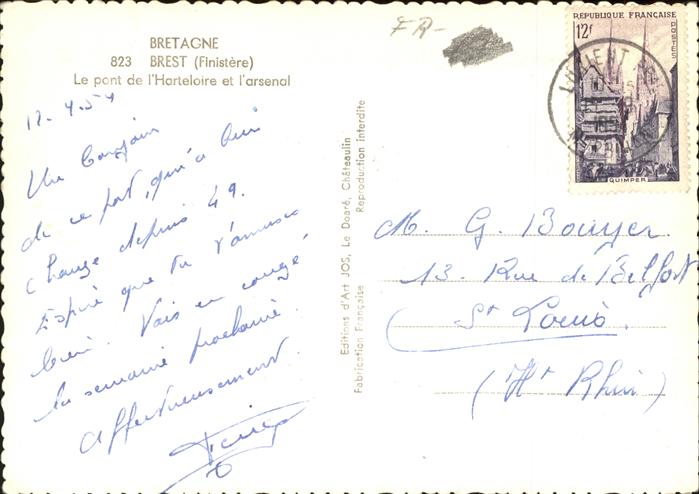 BRETAGNE
823 BREST (Finistère)
Le pont de l'Harteloire et l'arsenal
FR-
RÉPUBLIQUE FRANÇAISE
12f
POSTES
QUIMPER
LORIENT
12.4.54
Un bonjour
de ce port, qu'a bien
changé depuis 49.
Espère que tu t'amuses
bien. Vais en congé
la semaine prochaine.
Affectueusement.
Editions d'Art JOS, Le Doaré, Châteaulin
Fabrication Française Reproduction interdite
M. G. Bouyer
13. Rue de Belfort
St Louis.
(Ht Rhin)